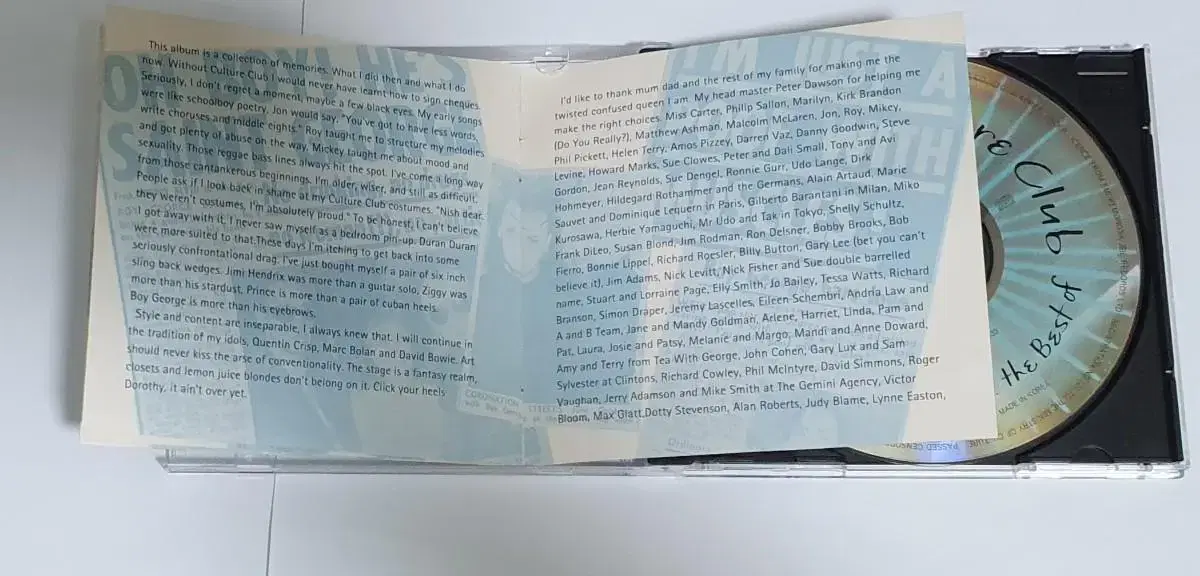 This album is a collection of memories. What I did then and what I do
now. Without Culture Club I would never have learnt how to sign cheques.
Seriously, I don't regret a moment, maybe a few black eyes. My early songs
were like schoolboy poetry, Jon would say, "You've got to have less words,
write choruses and middle eights." Roy taught me to structure my melodies
and got plenty of abuse on the way. Mickey taught me about mood and
sexuality. Those reggae bass lines always hit the spot. I've come a long way
from those cantankerous beginnings. I'm older, wiser, and still as difficult.
People ask if I look back in shame at my Culture Club costumes. "Nish dear,
they weren't costumes, I'm absolutely proud." To be honest, I can't believe
I got away with it, I never saw myself as a bedroom pin-up. Duran Duran
were more suited to that.These days I'm itching to get back into some
seriously confrontational drag. I've just bought myself a pair of six inch
sling back wedges. Jimi Hendrix was more than a guitar solo, Ziggy was
more than his stardust, Prince is more than a pair of cuban heels.
Boy George is more than his eyebrows.
Style and content are inseparable, I always knew that. I will continue in
the tradition of my idols, Quentin Crisp, Marc Bolan and David Bowie. Art
should never kiss the arse of conventionality. The stage is a fantasy realm,
closets and lemon juice blondes don't belong on it. Click your heels
Dorothy, it ain't over yet.
I'd like to thank mum dad and the rest of my family for making me the
twisted confused queen I am. My head master Peter Dawson for helping me
make the right choices. Miss Carter, Philip Sallon, Marilyn, Kirk Brandon
(Do You Really?), Matthew Ashman, Malcolm McLaren, Jon, Roy, Mikey,
Phil Pickett, Helen Terry, Amos Pizzey, Darren Vaz, Danny Goodwin, Steve
Levine, Howard Marks, Sue Clowes, Peter and Dali Small, Tony and Avi
Gordon, Jean Reynolds, Sue Dengel, Ronnie Gurr, Udo Lange, Dirk
Hohmeyer, Hildegard Rothammer and the Germans, Alain Artaud, Marie
Sauvet and Dominique Lequern in Paris, Gilberto Barantani in Milan, Miko
Kurosawa, Herbie Yamaguchi, Mr Udo and Tak in Tokyo, Shelly Schultz,
Frank DiLeo, Susan Blond, Jim Rodman, Ron Delsner, Bobby Brooks, Bob
Fierro, Bonnie Lippel, Richard Roesler, Billy Button, Gary Lee (bet you can't
believe it), Jim Adams, Nick Levitt, Nick Fisher and Sue double barrelled
name, Stuart and Lorraine Page, Elly Smith, Jo Bailey, Tessa Watts, Richard
Branson, Simon Draper, Jeremy Lascelles, Eileen Schembri, Andria Law and
A and B Team, Jane and Mandy Goldman, Arlene, Harriet, Linda, Pam and
Pat, Laura, Josie and Patsy, Melanie and Margo, Mandi and Anne Doward,
Amy and Terry from Tea With George, John Cohen, Gary Lux and Sam
Sylvester at Clintons, Richard Cowley, Phil McIntyre, David Simmons, Roger
Vaughan, Jerry Adamson and Mike Smith at The Gemini Agency, Victor
Bloom, Max Glatt,Dotty Stevenson, Alan Roberts, Judy Blame, Lynne Easton,
Club
the Best of
PASSED CENSOR